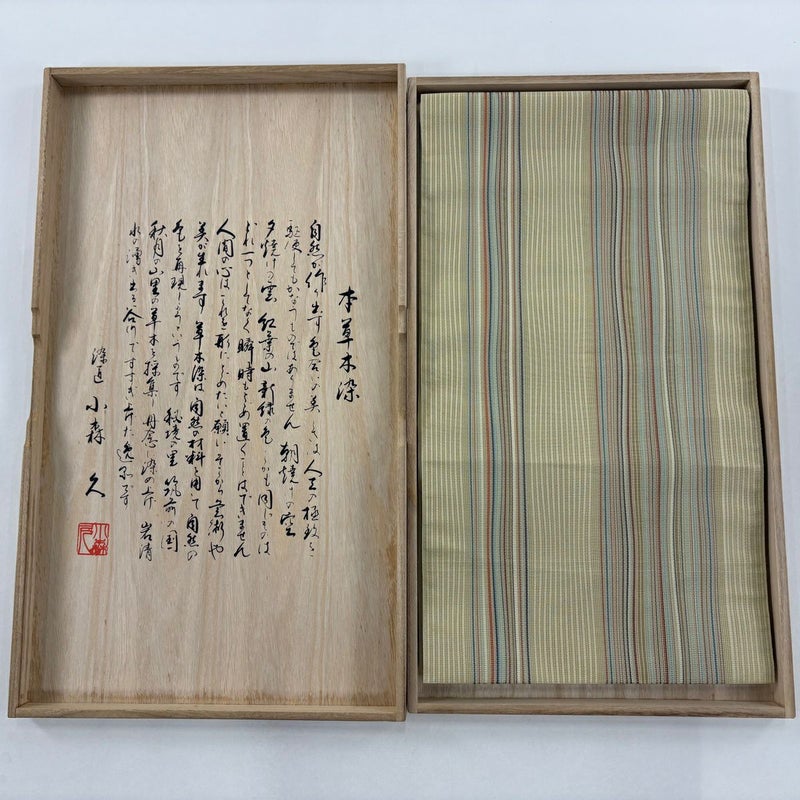 本草木染
自然が作り出す色合いの美しさは人工の極致を
駆使してもかなうものではありません 朝焼けの空
夕焼けの雲 紅葉の山 新緑の色 しかも同じものは
どれ一つとしてなく瞬時もとめ置くことはできません
人間の心はこれを形にとめたいと願い そこから芸術や
美が生れます 草木染は自然の材料を用いて自然の
色を再現しようというものです 秘境の里 筑前の国
秋月の山里の草木を採集し丹念に染め上げ 岩清
水の湧き出る谷川ですすぎ上げた逸品です
染匠 小森 久